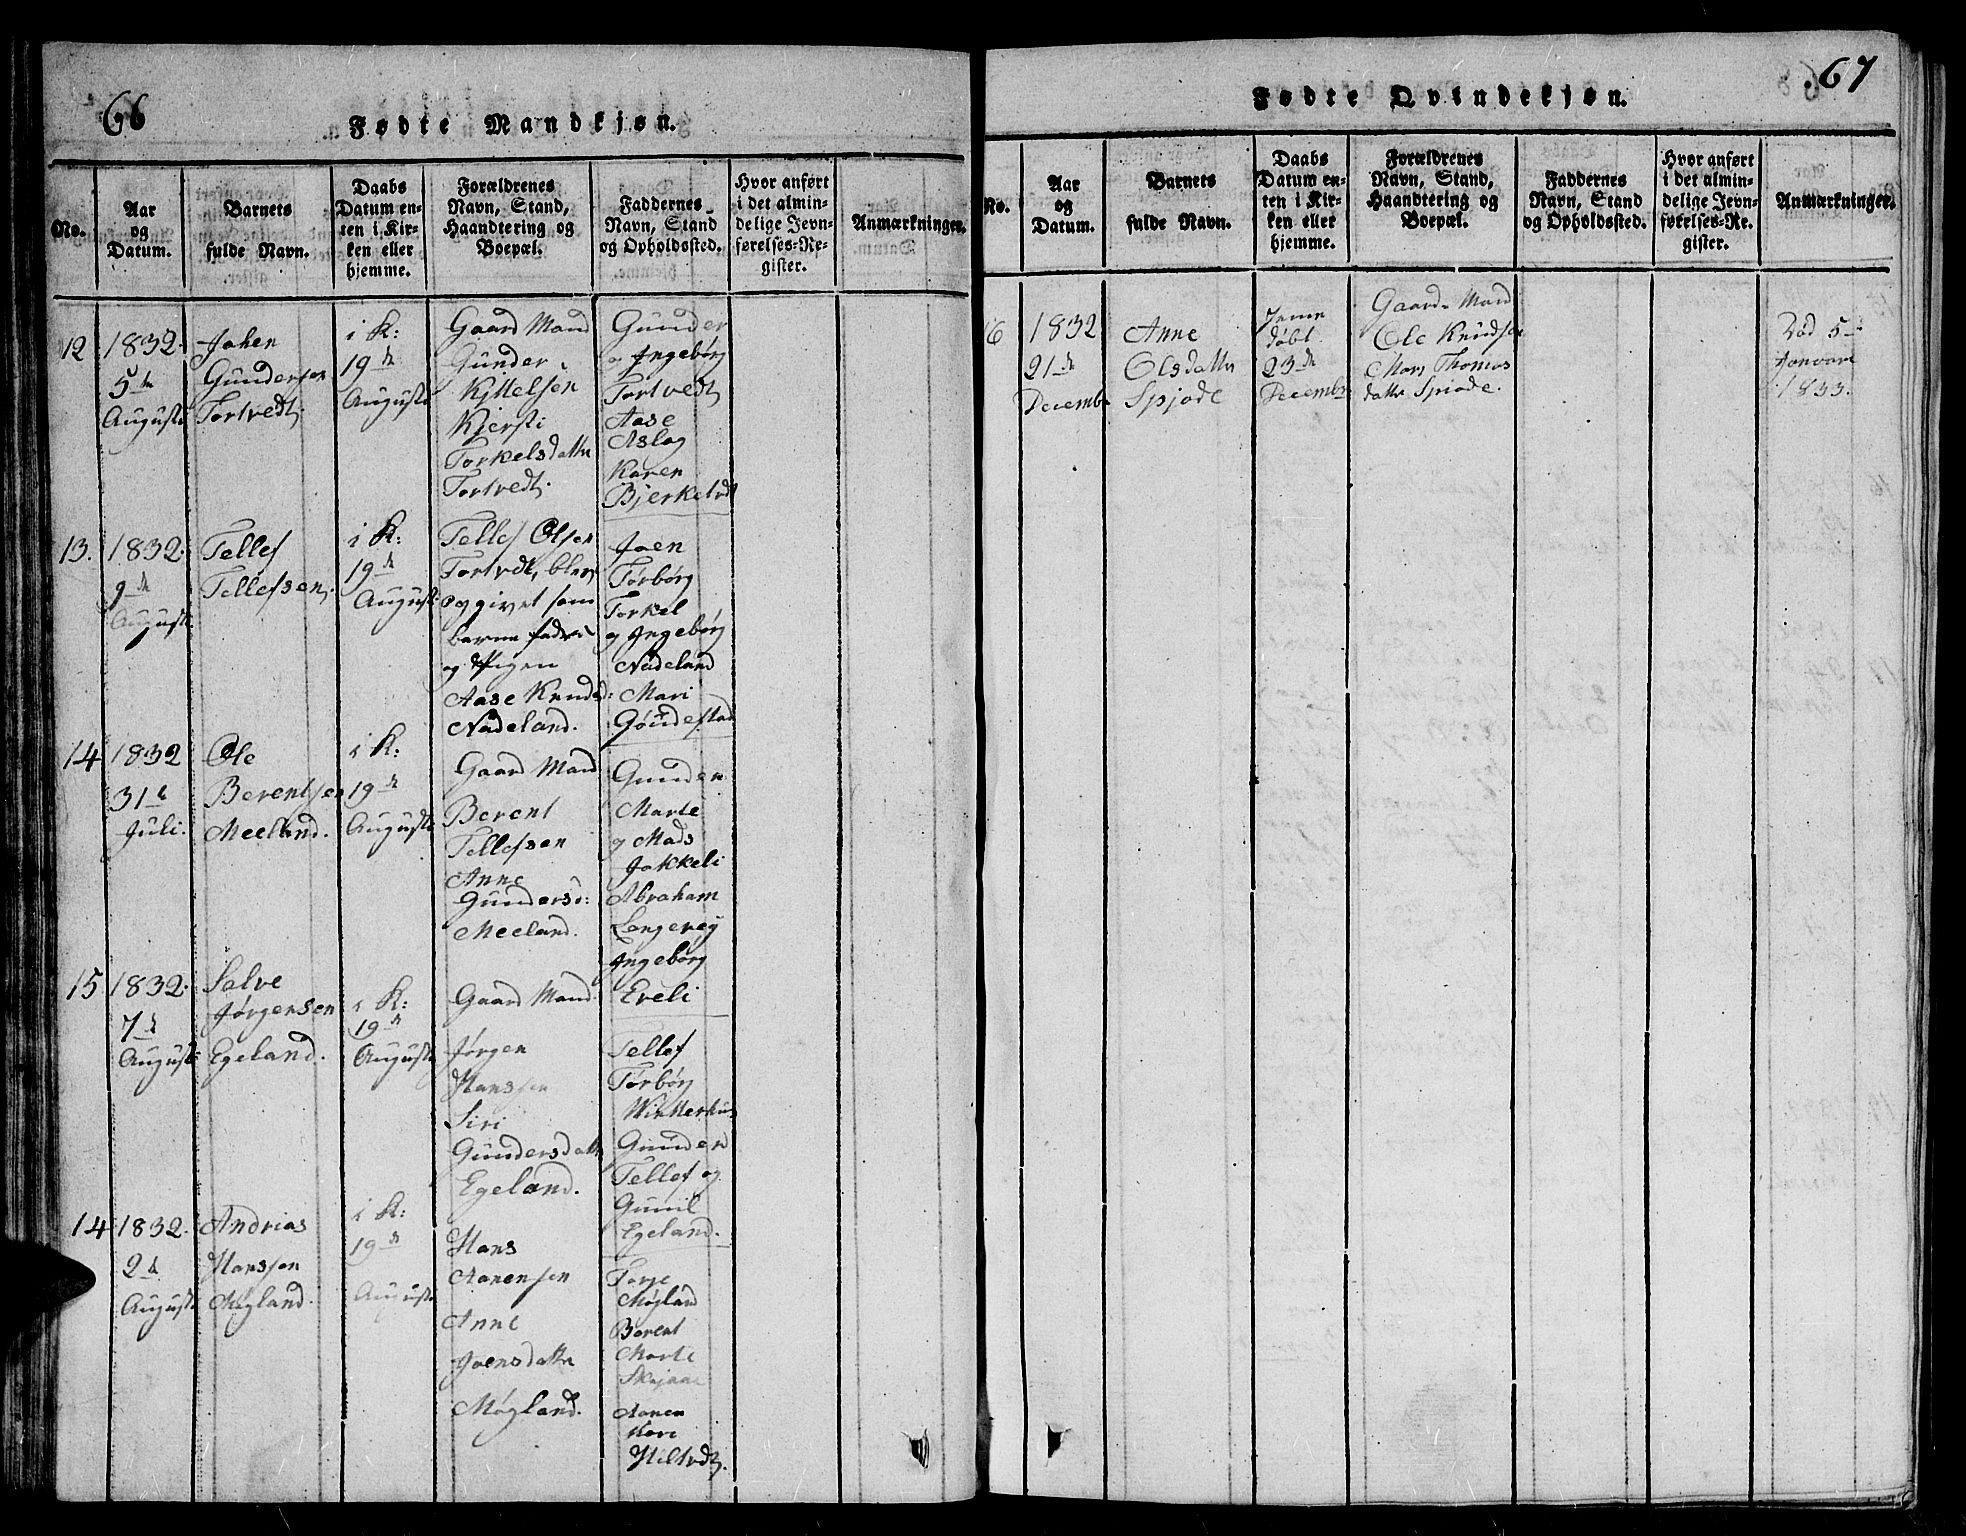 66
Fødte Mandkjøn.
No.
Aar
og
Datum.
Barnets
fulde Navn.
Daabs
Datum en-
ten i Kir-
ken eller
hjemme.
Forældrenes
Navn, Stand,
Haandtering og
Boepæl.
Faddernes
Navn, Stand
og Opholdssted.
Hvor anført
i det almin-
delige Jevn-
førelses-Re-
gister.
Anmærkninger.
12
1832.
5te
August
Johen
Gundersen
Tortvedt.
i K:
19de
August
Gaard Mand
Gunder
Kjttelsen
Kjersti
Torkelsdatter
Tortvedt.
Gunder
og Ingebørg
Tortvedt
Aase
Aslag
Karen
Bjerketvdt
13.
1832.
9de
August
Tellef
Tellefsen
i K:
19de
August
Tellef Olsen
Tortvdt, blev
opgivet som
barne fader
og Pigen
Aase Knudsd:
Nadeland.
Joen
Torbørg
Torkel
og Ingebørg
Nadeland
Mari
Gøudestad
14
1832
31te
Juli.
Ole
Berentsen
Meeland.
i K:
19de
August
Gaard Mand
Berent
Tellefsen
Anne
Gundersd:
Meeland.
Gunder
Marte
og Mads
Jokkeli
Abraham
Lengerej
Ingebørg
Ereli
15
1832.
7de
August
Salve
Jørgensen
Egeland.
i K:
19de
August
Gaard Mand
Jørgen
Hanssen
Siri
Gundersdatter
Egeland.
Tellef
Torbørg
Winterhus
Gunder
Tellef og
Gunil
Egeland.
14
1832.
2de
August
Andrias
Hanssen
Møgland.
i K:
19de
August
Hans
Aanensen
Anne
Joensdatter
Møgland.
Torje
Møgland
Berent
Marte
Skejaae
Aanen
Kari
Hiltvdt.
67
Fødte Qvindekjøn.
No.
Aar
og
Datum.
Barnets
fulde Navn.
Daabs
Datum en-
ten i Kir-
ken eller
hjemme.
Forældrenes
Navn, Stand,
Haandtering og
Boepæl.
Faddernes
Navn, Stand
og Opholdssted.
Hvor anført
i det almin-
delige Jevn-
førelses-Re-
gister.
Anmærkninger.
6
1832
21de
Decembr
Anne
Olsdatter
Spjode
døbt
23de
Decembr
Gaard Mand
Ole Knudsen
Mari Thomas
datter Spiode.
Død 5te
Januari
1833.